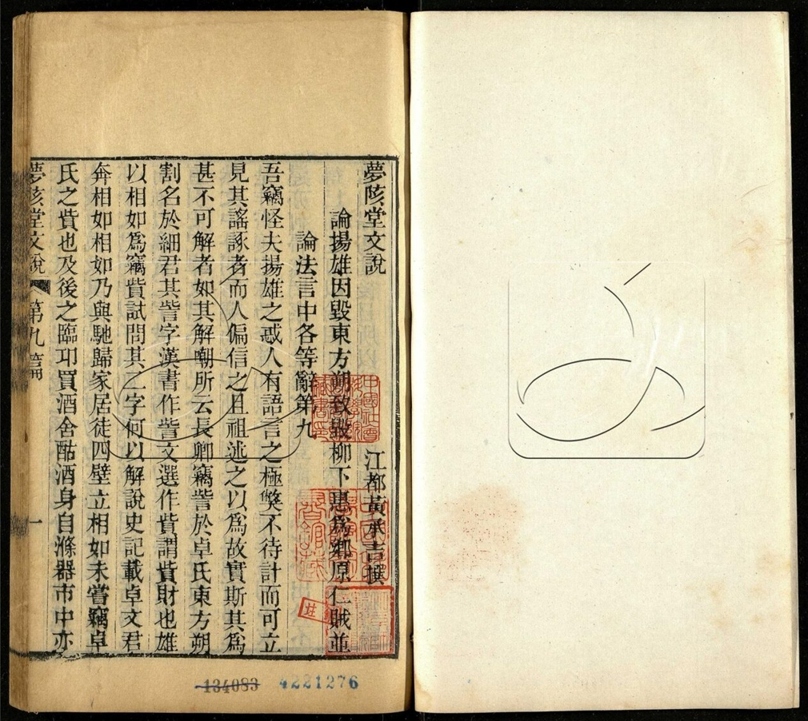 夢陔堂文說
江都黃承吉撰
論揚雄因毀東方朔致毀柳下惠為鄉原仁賊並
論法言中各等辭第九
吾竊怪夫揚雄之惑人有語言之極獘不待計而可立
見其謠諑者而人偏信之且祖述之以爲故實斯其爲
甚不可解者如其解嘲所云長卿竊訾於卓氏東方朔
割名於細君其訾字漢書作訾文選作貲謂貲財也雄
以相如爲竊貲試問其二字何以解說史記載卓文君
奔相如相如乃與馳歸家居徒四壁立相如未嘗竊卓
氏之貲也及後之臨卭買酒舍酤酒身自滌器市中亦
夢陔堂文說
第九篇
一
134083
4221276